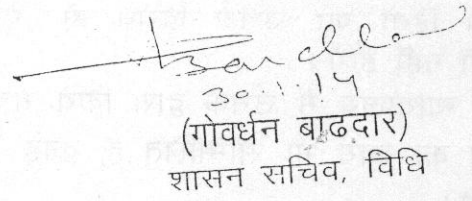 30.1.14
(गोवर्धन बाढदार)
शासन सचिव, विधि